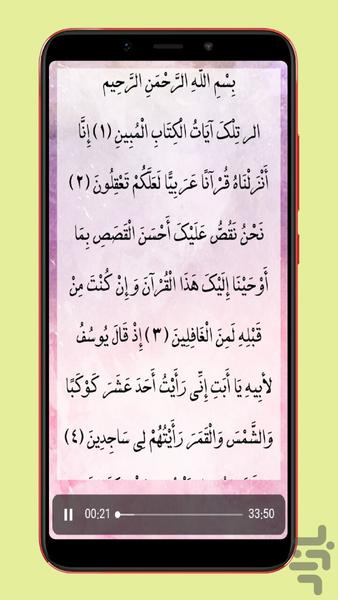 بِسْمِ اللَّهِ الرَّحْمَنِ الرَّحِيمِ
الر تِلْكَ آيَاتُ الْكِتَابِ الْمُبِينِ (١) إِنَّا
أَنْزَلْنَاهُ قُرْآنًا عَرَبِيًّا لَعَلَّكُمْ تَعْقِلُونَ (٢)
نَحْنُ نَقُصُّ عَلَيْكَ أَحْسَنَ الْقَصَصِ بِمَا
أَوْحَيْنَا إِلَيْكَ هَذَا الْقُرْآنَ وَإِنْ كُنْتَ مِنْ
قَبْلِهِ لَمِنَ الْغَافِلِينَ (٣) إِذْ قَالَ يُوسُفُ
لأبِيهِ يَا أَبَتِ إِنِّي رَأَيْتُ أَحَدَ عَشَرَ كَوْكَبًا
وَالشَّمْسَ وَالْقَمَرَ رَأَيْتُهُمْ لِي سَاجِدِينَ (٤)
00:21 33:50